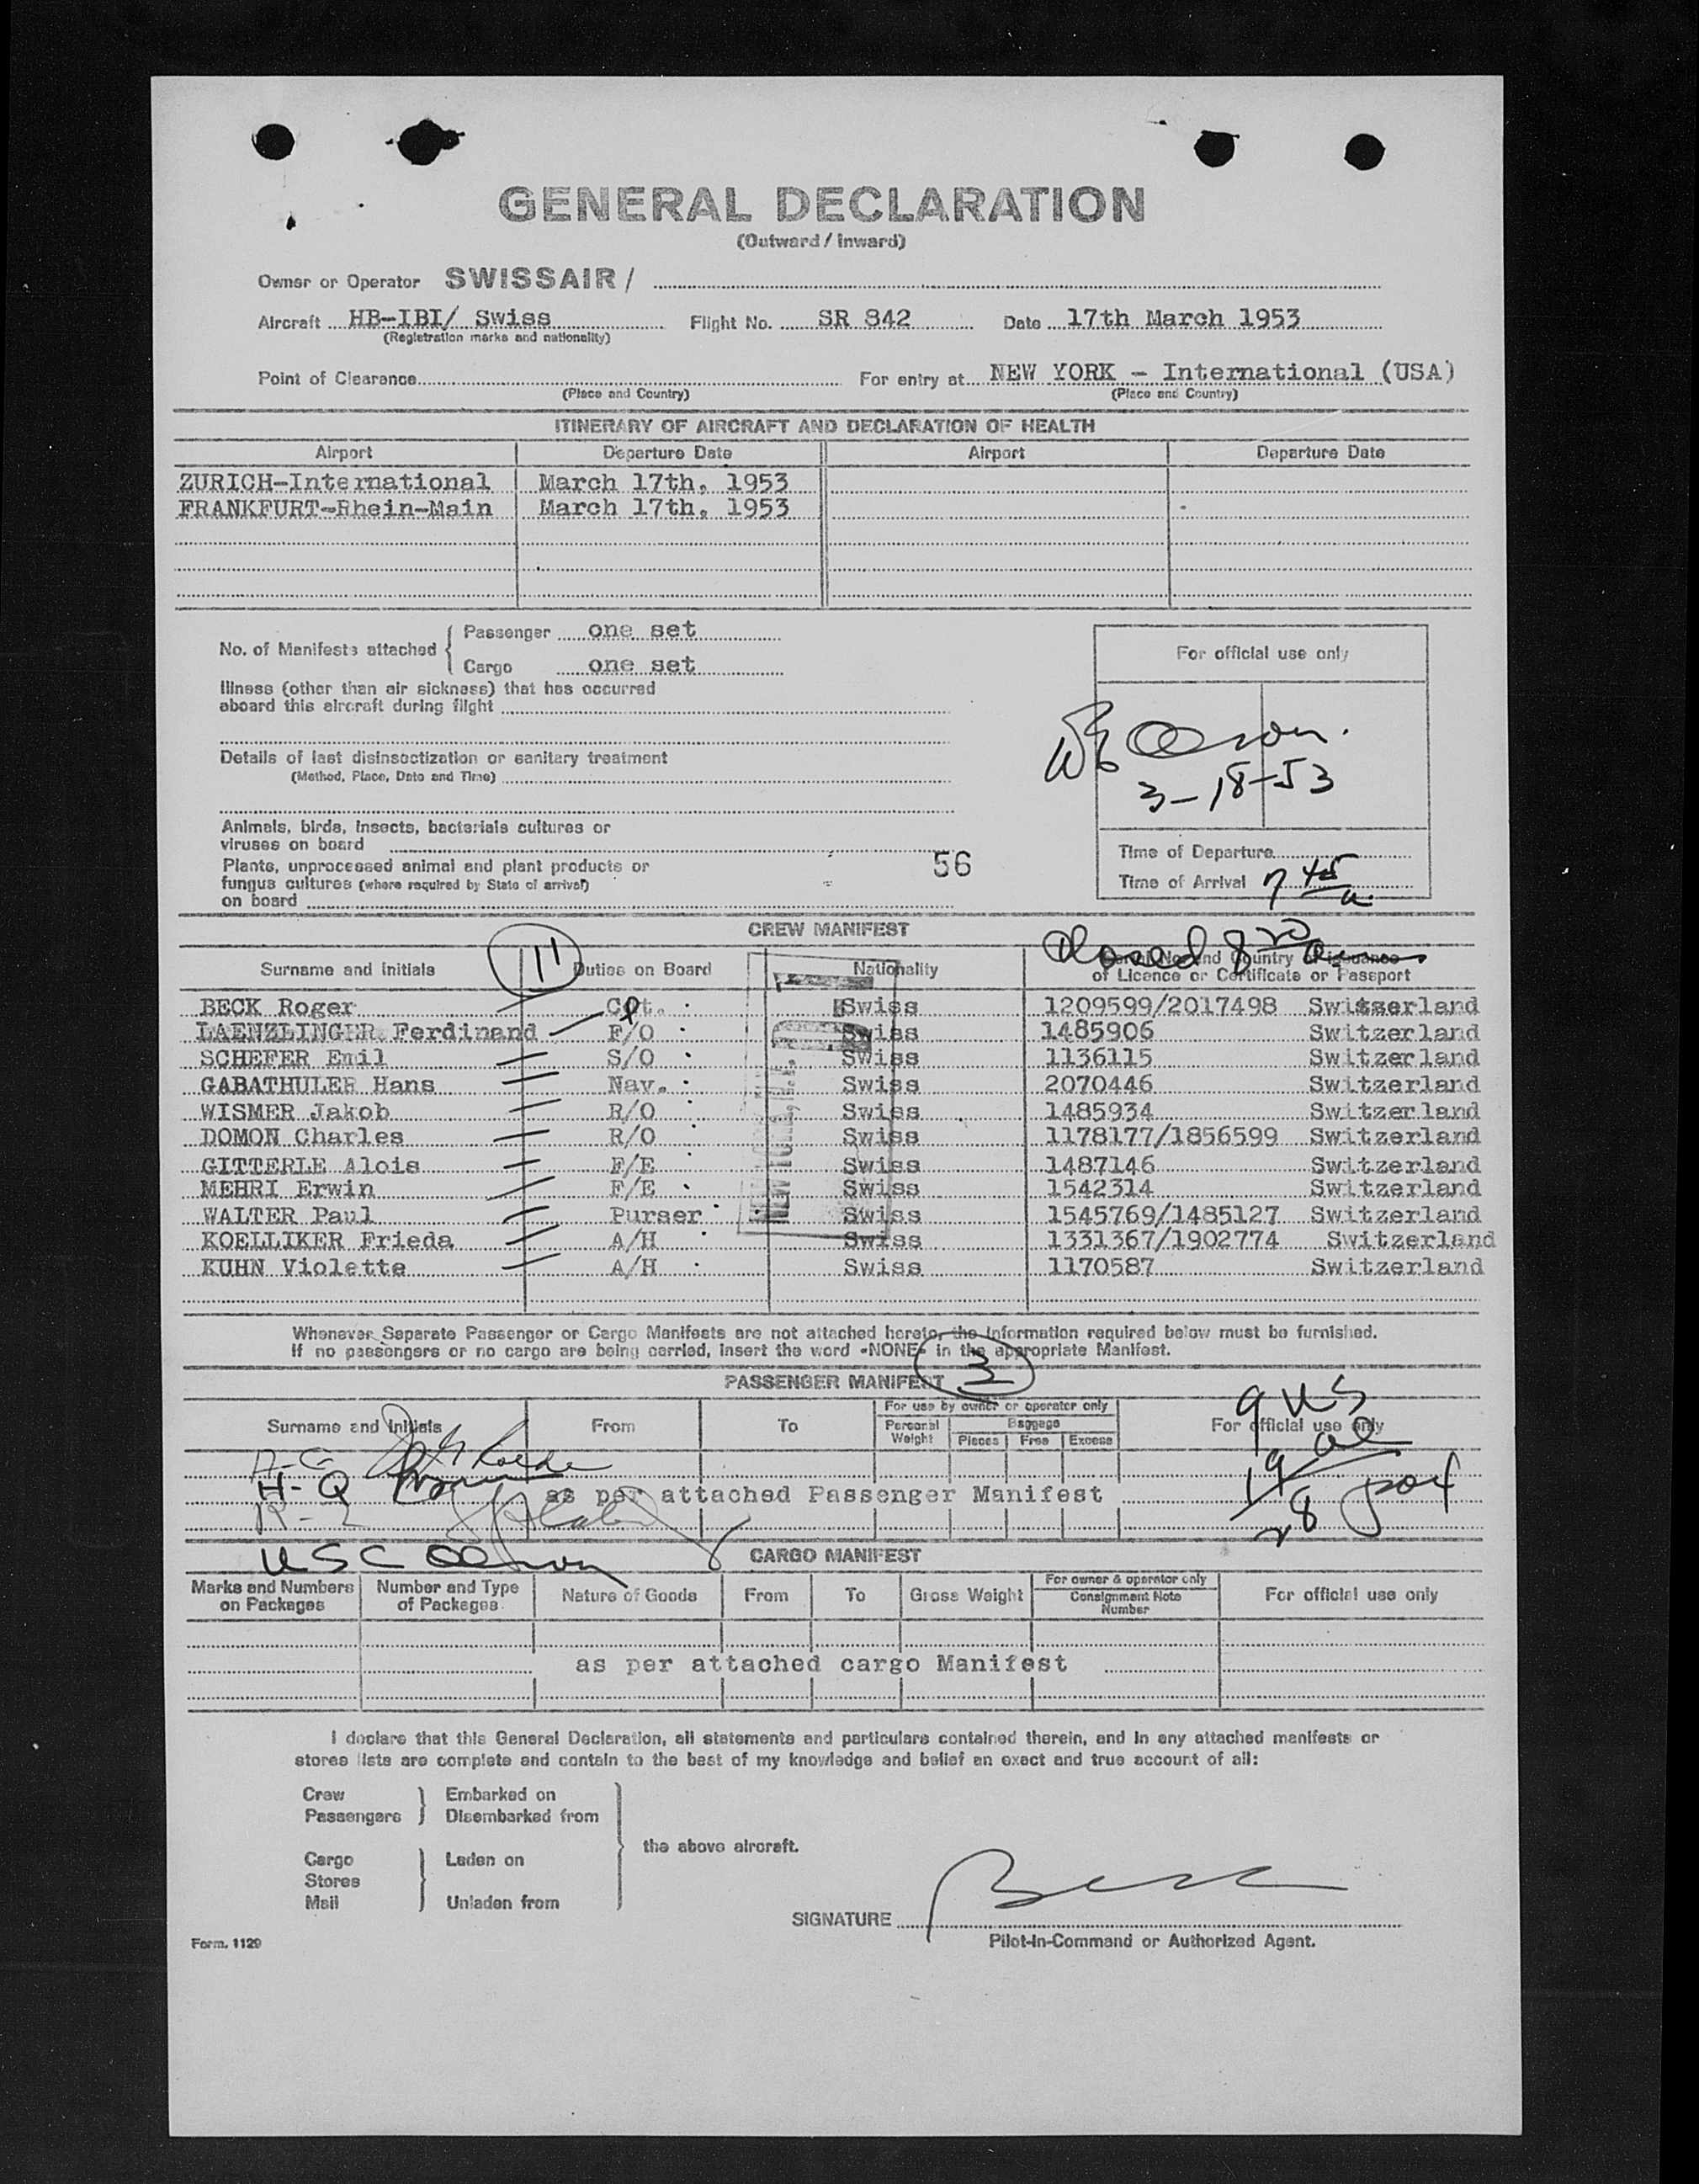 GENERAL DECLARATION
(Outward / Inward)
Owner or Operator SWISSAIR /
Aircraft HB-IBI/ Swiss Flight No. SR 842 Date 17th March 1953
(Registration marks and nationality)
Point of Clearance For entry at NEW YORK - International (USA)
(Place and Country) (Place and Country)
ITINERARY OF AIRCRAFT AND DECLARATION OF HEALTH
Airport Departure Date Airport Departure Date
ZURICH-International March 17th, 1953
FRANKFURT-Rhein-Main March 17th, 1953
No. of Manifests attached
Passenger one set
Cargo one set
Illness (other than air sickness) that has occurred
aboard this aircraft during flight
Details of last disinsectization or sanitary treatment
(Method, Place, Date and Time)
Animals, birds, insects, bacterials cultures or
viruses on board
Plants, unprocessed animal and plant products or
fungus cultures (where required by State of arrival)
on board
56
For official use only
3-18-53
Time of Departure
Time of Arrival 7 45 a.
CREW MANIFEST
Closed 8 20 a
11
Surname and Initials Duties on Board Nationality Serial No. and Country of issuance
of Licence or Certificate or Passport
BECK Roger Cpt. Swiss 1209599/2017498 Switserland
LAENZLINGER Ferdinand F/O Swiss 1485906 Switzerland
SCHEFER Emil S/O Swiss 1136115 Switzerland
GABATHULER Hans Nav. Swiss 2070446 Switzerland
WISMER Jakob R/O Swiss 1485934 Switzerland
DOMON Charles R/O Swiss 1178177/1856599 Switzerland
GITTERLE Alois F/E Swiss 1487146 Switzerland
MEHRI Erwin F/E Swiss 1542314 Switzerland
WALTER Paul Purser Swiss 1545769/1485127 Switzerland
KOELLIKER Frieda A/H Swiss 1331367/1902774 Switzerland
KUHN Violette A/H Swiss 1170587 Switzerland
Whenever Separate Passenger or Cargo Manifests are not attached hereto, the information required below must be furnished.
If no passengers or no cargo are being carried, insert the word «NONE» in the appropriate Manifest.
3
PASSENGER MANIFEST
Surname and Initials From To For use by owner or operator only For official use only
Personal Weight Baggage
Pieces Free Excess
9 US
19 al
28
H-Q
as per attached Passenger Manifest
USC
CARGO MANIFEST
Marks and Numbers on Packages Number and Type of Packages Nature of Goods From To Gross Weight For owner & operator only Consignment Note Number For official use only
as per attached cargo Manifest
I declare that this General Declaration, all statements and particulars contained therein, and in any attached manifests or
stores lists are complete and contain to the best of my knowledge and belief an exact and true account of all:
Crew Embarked on
Passengers Disembarked from
the above aircraft.
Cargo Laden on
Stores
Mail Unladen from
SIGNATURE Beck
Pilot-in-Command or Authorized Agent.
Form. 1129